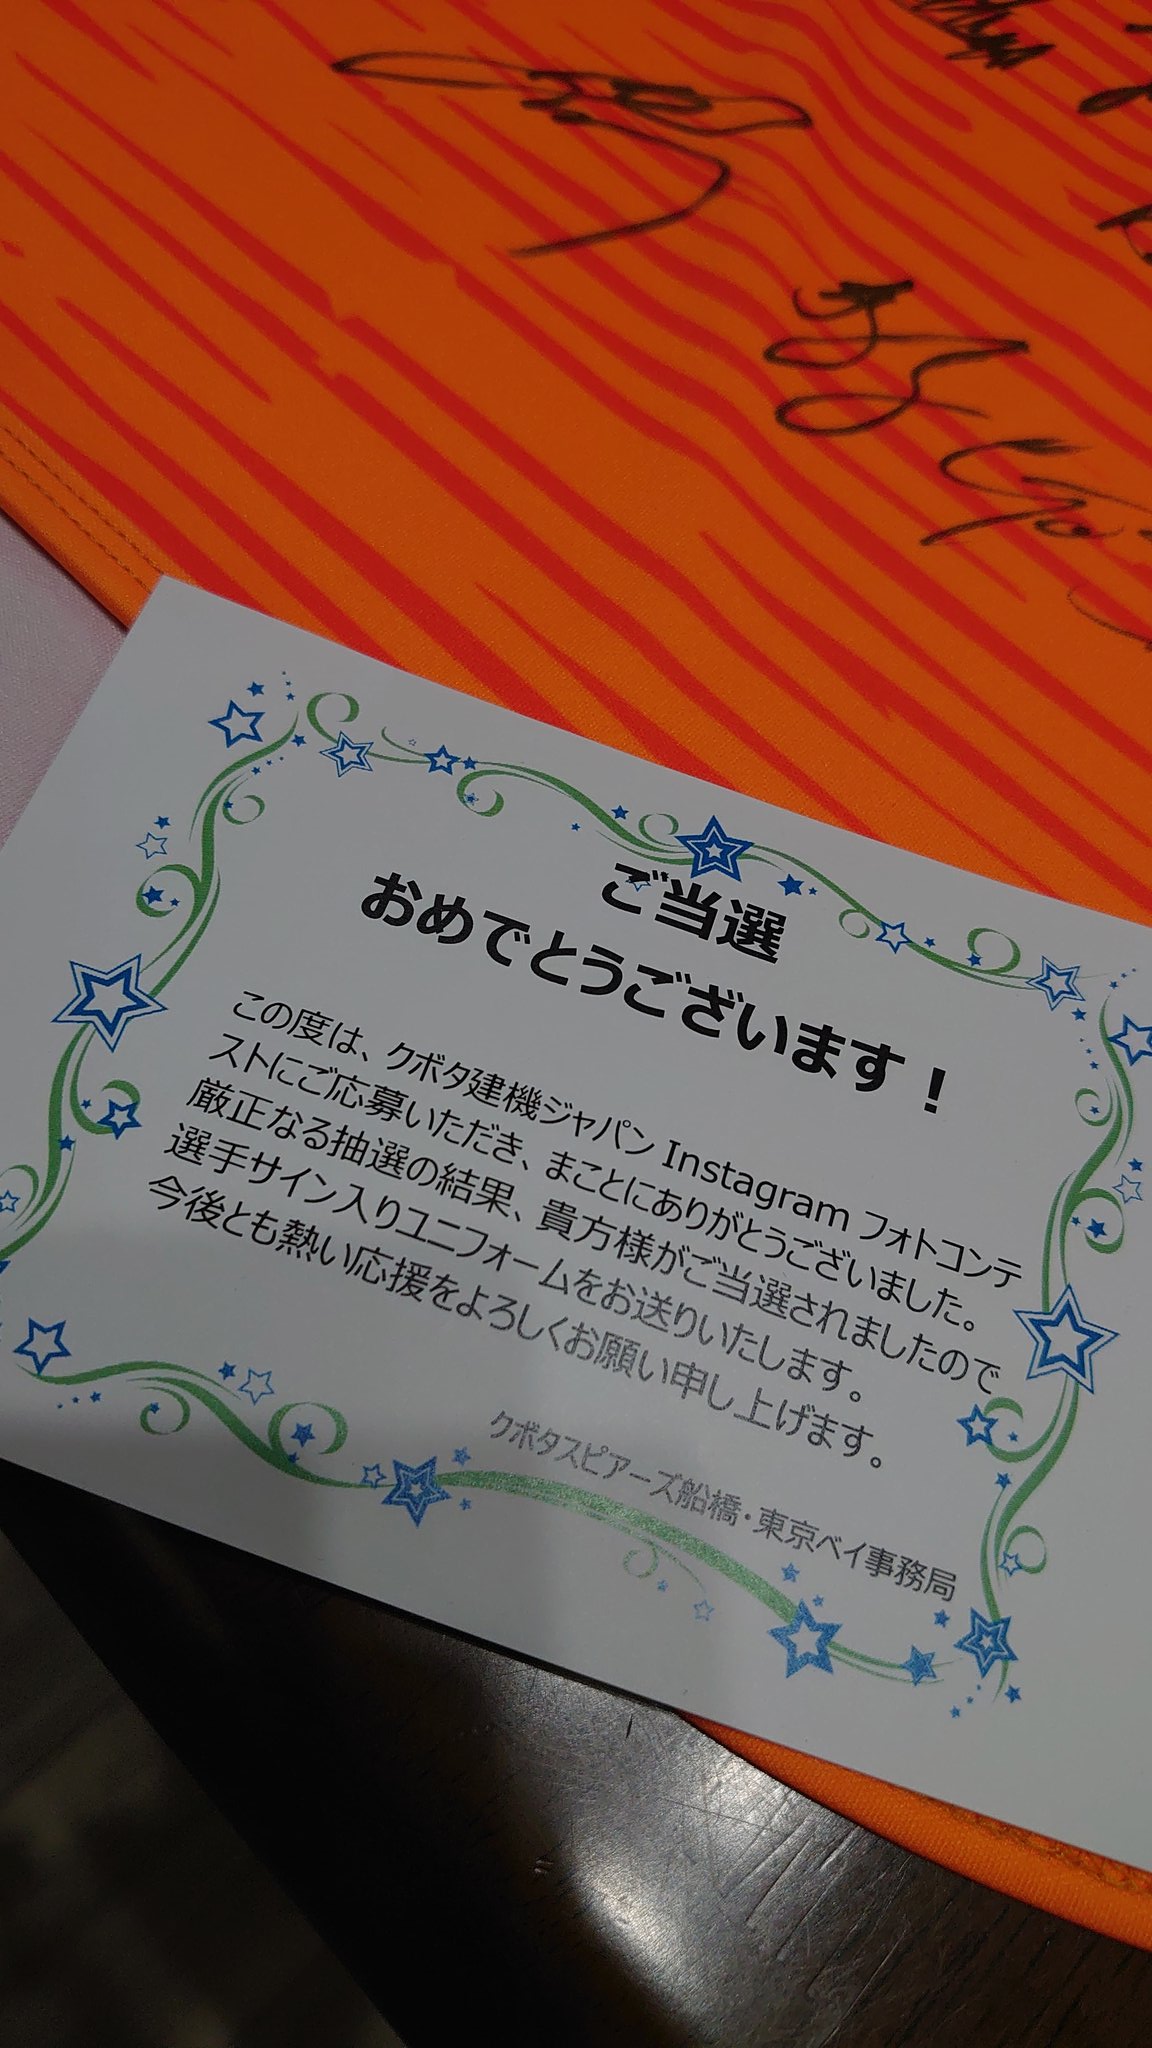 ご当選
おめでとうございます！
この度は、クボタ建機ジャパン Instagram フォトコンテ
ストにご応募いただき、まことにありがとうございました。
厳正なる抽選の結果、貴方様がご当選されましたので
選手サイン入りユニフォームをお送りいたします。
今後とも熱い応援をよろしくお願い申し上げます。
クボタスピアーズ船橋・東京ベイ事務局